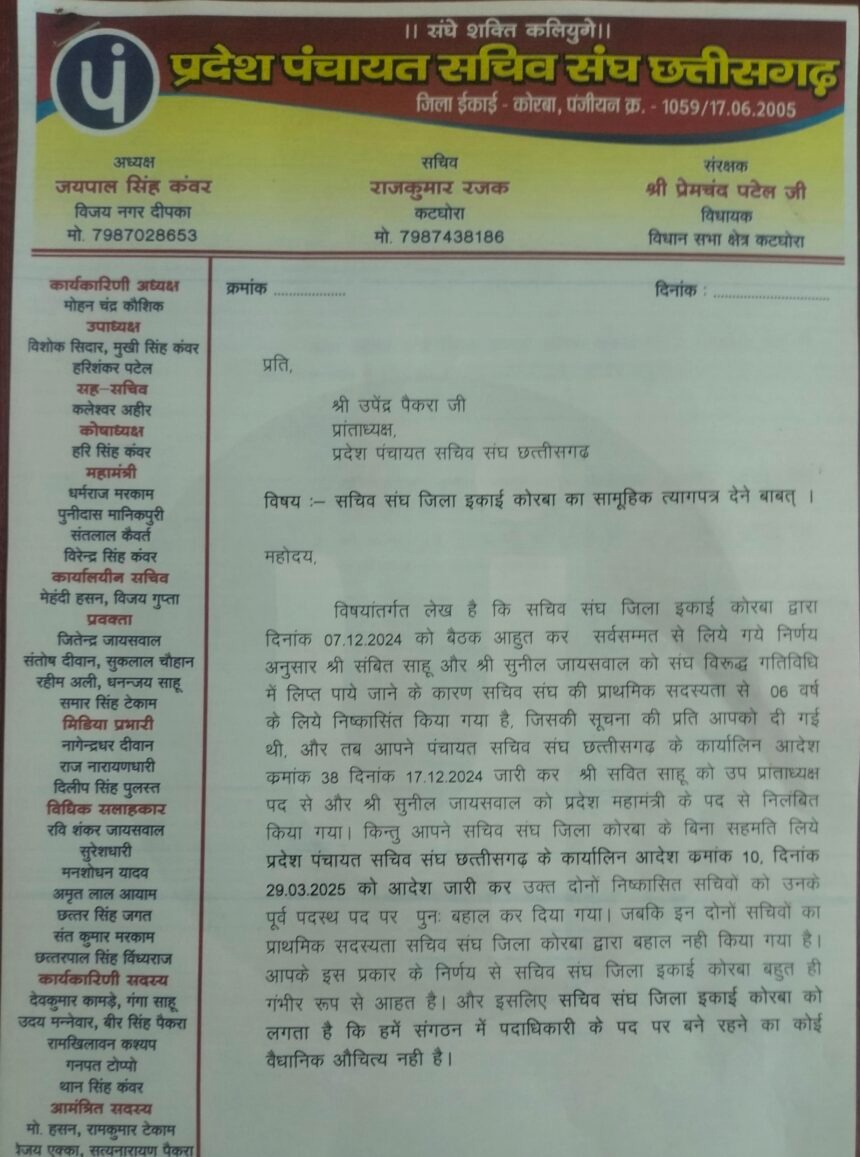 ।। संघे शक्ति कलियुगे।।
पं
प्रदेश पंचायत सचिव संघ छत्तीसगढ़
जिला ईकाई - कोरबा, पंजीयन क्र. - 1059/17.06.2005
अध्यक्ष
जयपाल सिंह कंवर
विजय नगर दीपका
मो. 7987028653
सचिव
राजकुमार रजक
कटघोरा
मो. 7987438186
संरक्षक
श्री प्रेमचंद पटेल जी
विधायक
विधान सभा क्षेत्र कटघोरा
कार्यकारिणी अध्यक्ष
मोहन चंद्र कौशिक
उपाध्यक्ष
विशोक सिदार, मुखी सिंह कंवर
हरिशंकर पटेल
सह-सचिव
कलेश्वर अहीर
कोषाध्यक्ष
हरि सिंह कंवर
महामंत्री
धर्मराज मरकाम
पुनीदास मानिकपुरी
संतलाल कैवर्त
विरेन्द्र सिंह कंवर
कार्यालयीन सचिव
मेहंदी हसन, विजय गुप्ता
प्रवक्ता
जितेन्द्र जायसवाल
संतोष दीवान, सुकलाल चौहान
रहीम अली, धनन्जय साहू
समार सिंह टेकाम
मिडिया प्रभारी
नागेन्द्रधर दीवान
राज नारायणधारी
दिलीप सिंह पुलस्त
विधिक सलाहकार
रवि शंकर जायसवाल
सुरेशधारी
मनशोधन यादव
अमृत लाल आयाम
छत्तर सिंह जगत
संत कुमार मरकाम
छत्तरपाल सिंह विंध्यराज
कार्यकारिणी सदस्य
देवकुमार कामड़े, गंगा साहू
उदय मन्नेवार, बीर सिंह पैकरा
रामखिलावन कश्यप
गनपत टोप्पो
थान सिंह कंवर
आमंत्रित सदस्य
मो. हसन, रामकुमार टेकाम
एक्का, सत्यनारायण पैकरा
क्रमांक ..................
दिनांक : ..............................
प्रति,
श्री उपेंद्र पैकरा जी
प्रांताध्यक्ष,
प्रदेश पंचायत सचिव संघ छत्तीसगढ़
विषय :– सचिव संघ जिला इकाई कोरबा का सामूहिक त्यागपत्र देने बाबत् ।
महोदय,
विषयांतर्गत लेख है कि सचिव संघ जिला इकाई कोरबा द्वारा
दिनांक 07.12.2024 को बैठक आहुत कर सर्वसम्मत से लिये गये निर्णय
अनुसार श्री संबित साहू और श्री सुनील जायसवाल को संघ विरूद्ध गतिविधि
में लिप्त पाये जाने के कारण सचिव संघ की प्राथमिक सदस्यता से 06 वर्ष
के लिये निष्कासिंत किया गया है, जिसकी सूचना की प्रति आपको दी गई
थी, और तब आपने पंचायत सचिव संघ छत्तीसगढ़ के कार्यालिन आदेश
कमांक 38 दिनांक 17.12.2024 जारी कर श्री सवित साहू को उप प्रांताध्यक्ष
पद से और श्री सुनील जायसवाल को प्रदेश महामंत्री के पद से निलंबित
किया गया। किन्तु आपने सचिव संघ जिला कोरबा के बिना सहमति लिये
प्रदेश पंचायत सचिव संघ छत्तीसगढ़ के कार्यालिन आदेश कमांक 10, दिनांक
29.03.2025 को आदेश जारी कर उक्त दोनों निष्कासित सचिवों को उनके
पूर्व पदस्थ पद पर पुनः बहाल कर दिया गया। जबकि इन दोनों सचिवों का
प्राथमिक सदस्यता सचिव संघ जिला कोरबा द्वारा बहाल नही किया गया है।
आपके इस प्रकार के निर्णय से सचिव संघ जिला इकाई कोरबा बहुत ही
गंभीर रूप से आहत है। और इसलिए सचिव संघ जिला इकाई कोरबा को
लगता है कि हमें संगठन में पदाधिकारी के पद पर बने रहने का कोई
वैधानिक औचित्य नही है।